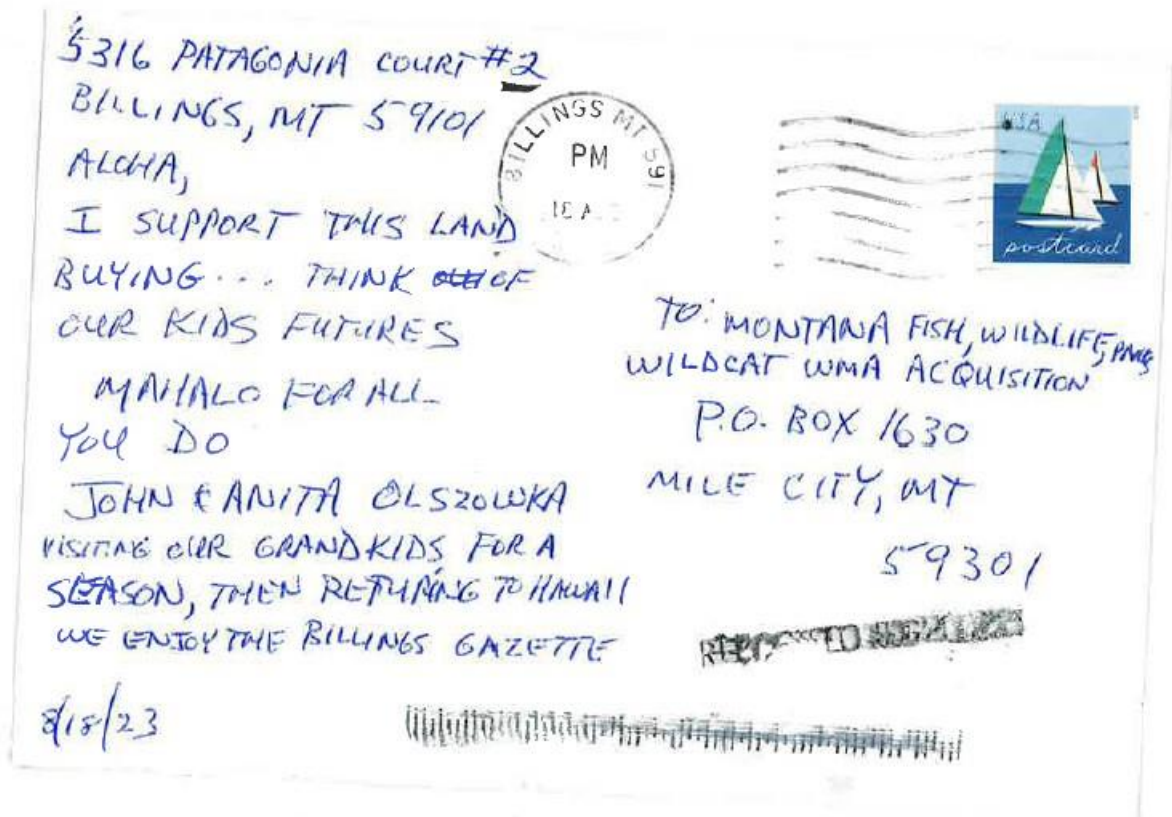 5316 PATAGONIA COURT #2
BILLINGS, MT 59101
ALOHA,
I SUPPORT THIS LAND
BUYING... THINK OF
OUR KIDS FUTURES
MAHALO FOR ALL
YOU DO
JOHN & ANITA OLSZOWKA
VISITING OUR GRANDKIDS FOR A
SEASON, THEN RETURNING TO HAWAII
WE ENJOY THE BILLINGS GAZETTE
8/18/23
BILLINGS MT 591
PM
USA
postcard
TO: MONTANA FISH, WILDLIFE, PARKS
WILDCAT WMA ACQUISITION
P.O. BOX 1630
MILE CITY, MT
59301